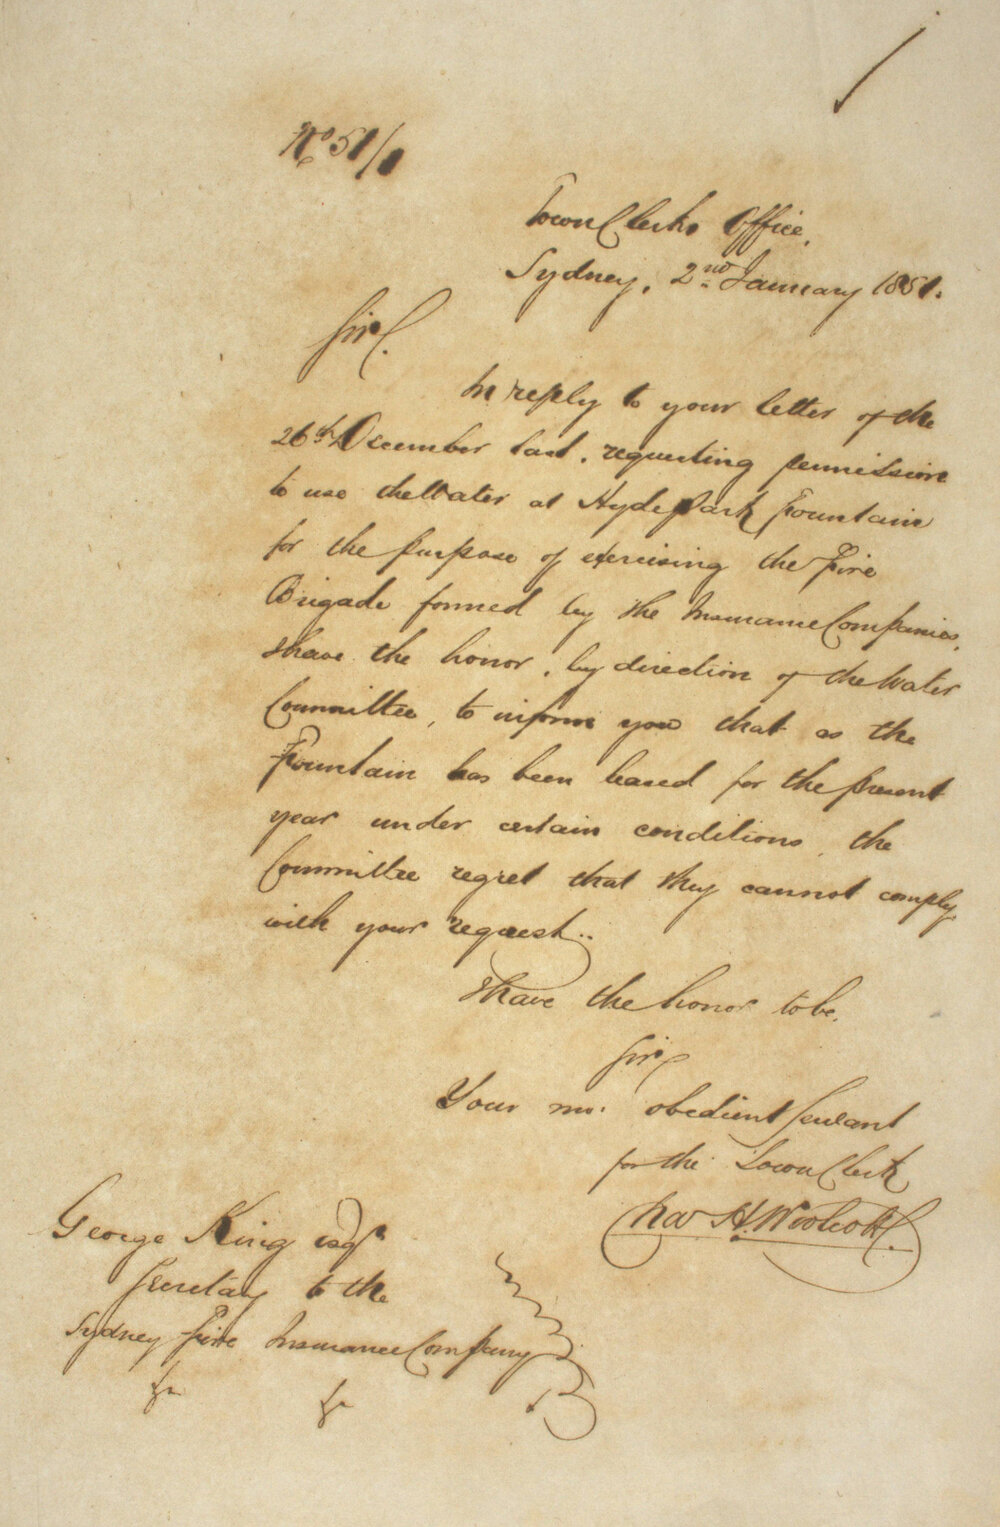 No 51/1
Town Clerks Office,
Sydney, 2nd January 1851.
Sir,
In reply to your letter of the
26th December last, requesting permission
to use the Water at Hyde Park Fountain
for the purpose of exercising the Fire
Brigade formed by the Insurance Companies,
I have the honor, by direction of the Water
Committee, to inform you that as the
Fountain has been leased for the present
year under certain conditions, the
Committee regret that they cannot comply
with your request..
I have the honor to be,
Sir,
Your mo. obedient Servant
for the Town Clerk
Chas H. Woolcott
George King esqr
Secretary to the
Sydney Fire Insurance Company
&c &c